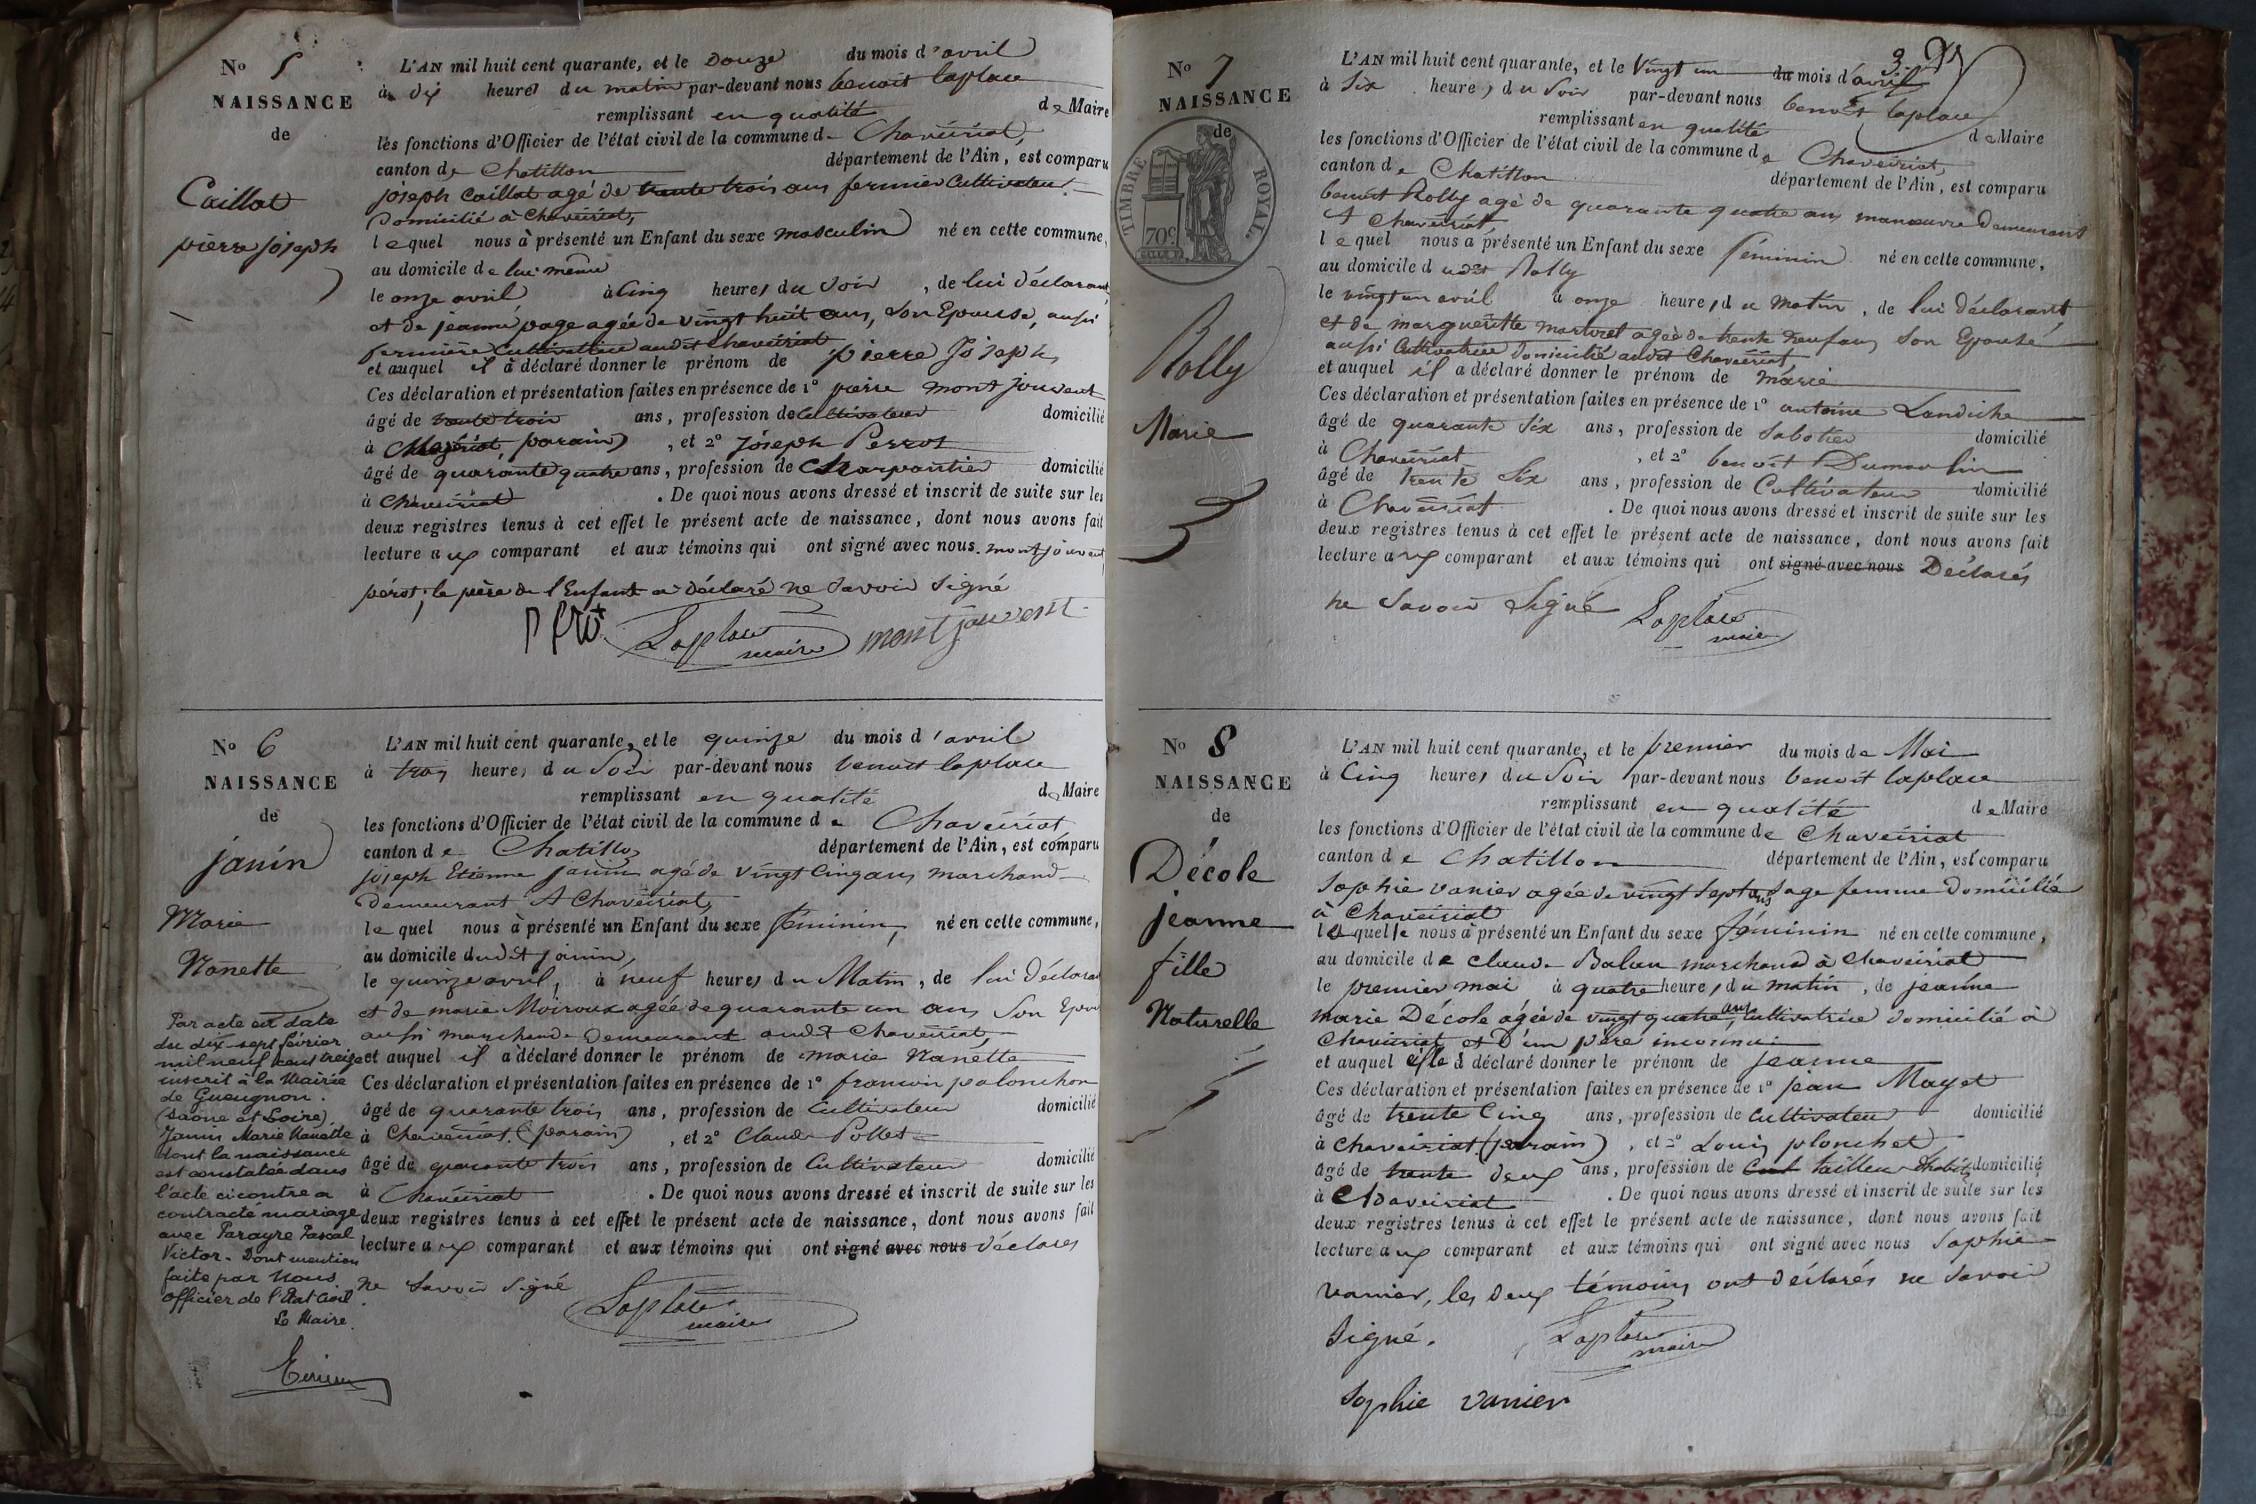 No 5
NAISSANCE
de
Caillat
pierre joseph
L'AN mil huit cent quarante, et le Douze du mois d'avril
à dix heures du matin par-devant nous benoit laplace
remplissant en qualité de Maire
les fonctions d'Officier de l'état civil de la commune de Chaveiriat,
canton de Chatillon département de l'Ain, est comparu
joseph Caillat agé de trente trois ans fermier Cultivateur
Domicilié à Chaveiriat,
lequel nous à présenté un Enfant du sexe masculin né en cette commune,
au domicile de lui même
le onze avril à Cinq heures du Soir, de lui déclarant
et de jeanne page agée de vingt huit ans, Son Epouse, aussi
fermière Cultivatrice audit Chaveiriat
et auquel il à déclaré donner le prénom de pierre Joseph
Ces déclaration et présentation faites en présence de 1° pierre montjouvent
âgé de trente trois ans, profession de Cultivateur domicilié
à parain), et 2° Joseph Perrot
âgé de quarante quatre ans, profession de Charpentier domicilié
à Chaveiriat. De quoi nous avons dressé et inscrit de suite sur les
deux registres tenus à cet effet le présent acte de naissance, dont nous avons fait
lecture aux comparant et aux témoins qui ont signé avec nous. montjouvent
pérot, le père de l'Enfant a déclaré ne Savoir Signé
Laplace maire montjouvent
No 6
NAISSANCE
de
janin
Marie
Nanette
L'AN mil huit cent quarante, et le quinze du mois d'avril
à trois heures du Soir par-devant nous benoit laplace
remplissant en qualité de Maire
les fonctions d'Officier de l'état civil de la commune de Chaveiriat
canton de Chatillon département de l'Ain, est comparu
joseph Etienne janin agé de vingt Cinq ans marchand
Demeurant A Chaveiriat,
lequel nous à présenté un Enfant du sexe féminin, né en cette commune,
au domicile dudit janin,
le quinze avril, à neuf heures du Matin, de lui Déclarant
et de marie Moiroux agée de quarante un ans Son Epouse
aussi marchande Demeurant audit Chaveiriat,
et auquel il a déclaré donner le prénom de marie Nanette
Ces déclaration et présentation faites en présence de 1° francois palonchon
âgé de quarante trois ans, profession de Cultivateur domicilié
à Chaveiriat (parain), et 2° Claude Pollet
âgé de quarante trois ans, profession de Cultivateur domicilié
à Chaveiriat. De quoi nous avons dressé et inscrit de suite sur les
deux registres tenus à cet effet le présent acte de naissance, dont nous avons fait
lecture aux comparant et aux témoins qui ont signé avec nous déclarés
ne Savoir Signé
Laplace maire
Par acte en date
du dix-sept février
mil neuf cent treize
inscrit à la Mairie
de Gueugnon.
(Saône et Loire)
Janin Marie Nanette
dont la naissance
est constatée dans
l'acte ci contre a
contracté mariage
avec Parayre Pascal
Victor. Dont mention
faite par Nous
officier de l'Etat Civil.
Le Maire.
No 7
NAISSANCE
de
TIMBRE ROYAL.
70c.
Rolly
Marie
L'AN mil huit cent quarante, et le vingt un du mois d'avril
à Six heures du Soir par-devant nous benoit laplace
remplissant en qualité de Maire
les fonctions d'Officier de l'état civil de la commune de Chaveiriat,
canton de Chatillon département de l'Ain, est comparu
benoit Rolly agé de quarante quatre ans manœuvre Demeurant
A Chaveiriat,
lequel nous a présenté un Enfant du sexe féminin né en cette commune,
au domicile dudit Rolly
le vingt un avril à onze heures du Matin, de lui Déclarant
et de margueritte marturet agée de trente neuf ans Son Epouse
aussi Cultivatrice domicilié audit Chaveiriat
et auquel il a déclaré donner le prénom de marie
Ces déclaration et présentation faites en présence de 1° antoine Landiche
âgé de quarante Six ans, profession de Sabotier domicilié
à Chaveiriat, et 2° benoit Dumoulin
âgé de trente Six ans, profession de Cultivateur domicilié
à Chaveiriat. De quoi nous avons dressé et inscrit de suite sur les
deux registres tenus à cet effet le présent acte de naissance, dont nous avons fait
lecture aux comparant et aux témoins qui ont signé avec nous Déclarés
ne Savoir Signé Laplace maire
No 8
NAISSANCE
de
Décole
jeanne
fille
Naturelle
L'AN mil huit cent quarante, et le premier du mois de Mai
à Cinq heures du Soir par-devant nous benoit laplace
remplissant en qualité de Maire
les fonctions d'Officier de l'état civil de la commune de Chaveiriat
canton de Chatillon département de l'Ain, est comparu
Sophie vanier agée de vingt Sept ans Sage femme Domicilié
à Chaveiriat
laquelle nous à présenté un Enfant du sexe féminin né en cette commune,
au domicile de claude Balan marchand à Chaveiriat
le premier mai à quatre heures du matin, de jeanne
marie Décole agée de vingt quatre ans, Cultivatrice domicilié à
Chaveiriat et D'un père inconnu
et auquel elle à déclaré donner le prénom de jeanne
Ces déclaration et présentation faites en présence de 1° jean Mayet
âgé de trente Cinq ans, profession de Cultivateur domicilié
à Chaveiriat (parain), et 2° Louis plonchet
âgé de trente deux ans, profession de Cult tailleur d'habits domicilié
à Chaveiriat. De quoi nous avons dressé et inscrit de suite sur les
deux registres tenus à cet effet le présent acte de naissance, dont nous avons fait
lecture aux comparant et aux témoins qui ont signé avec nous Sophie
vanier, les deux témoins ont déclarés ne Savoir
Signé. Laplace maire
Sophie vanier